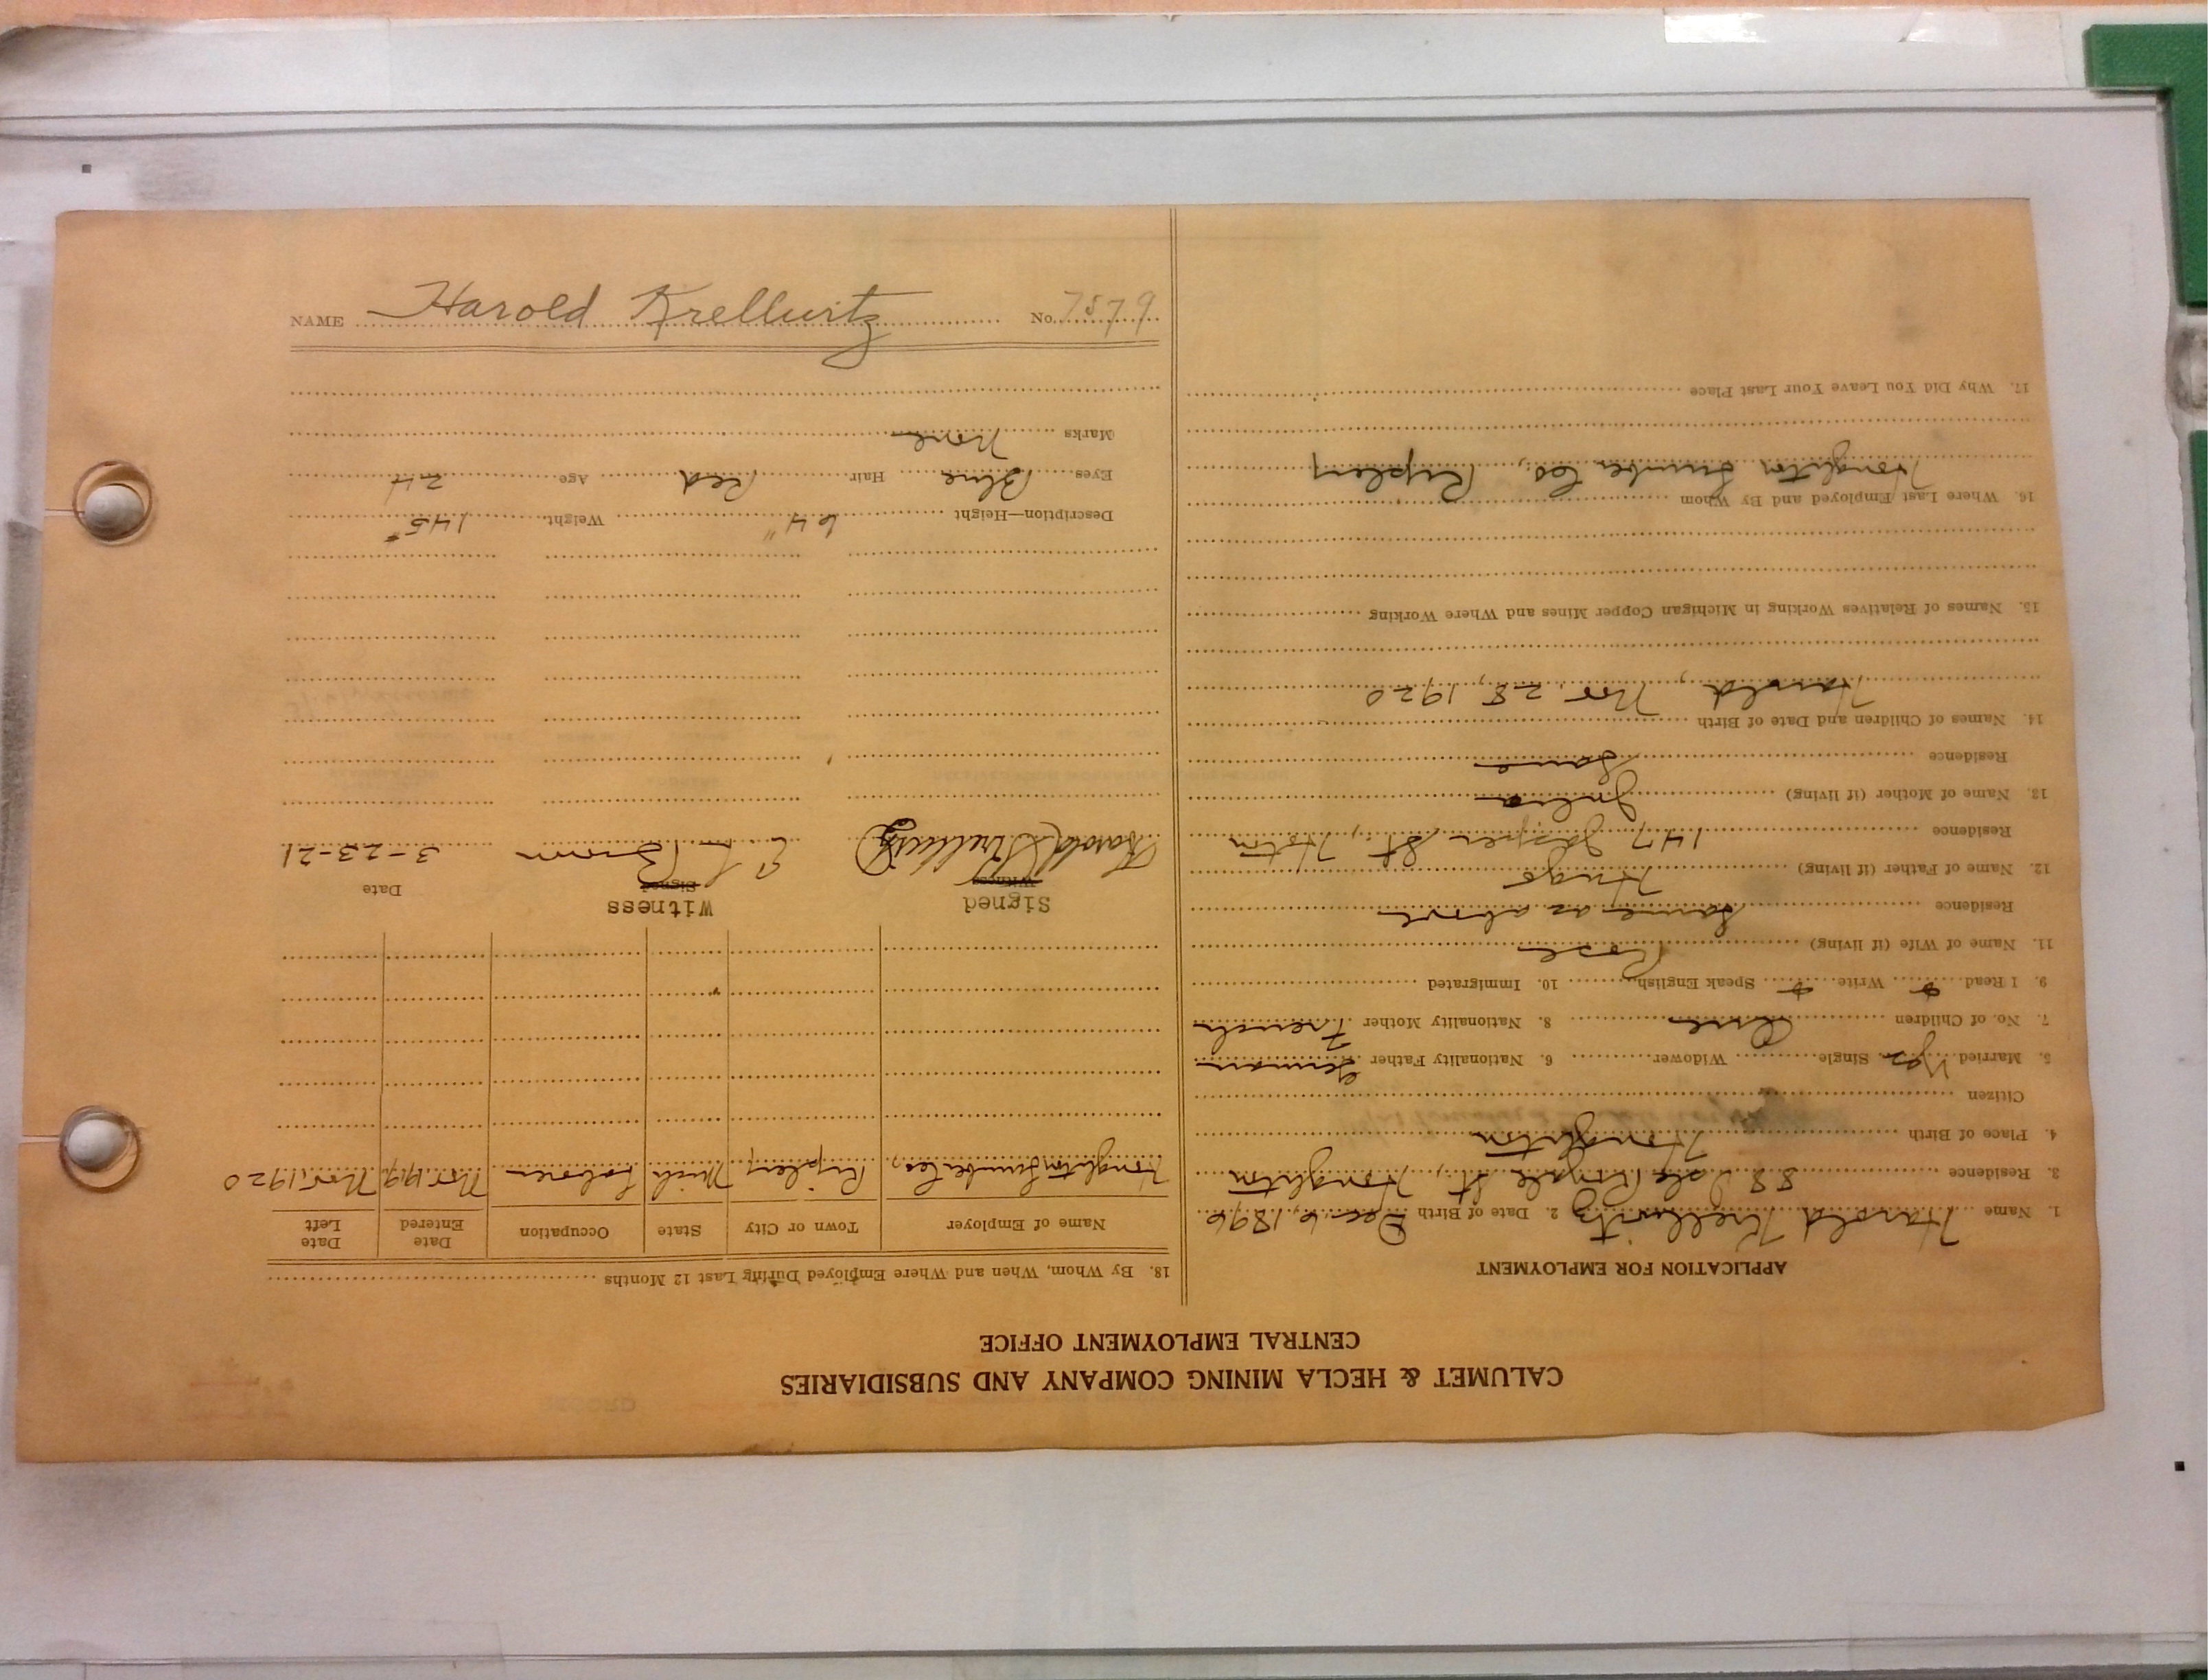 CALUMET & HECLA MINING COMPANY AND SUBSIDIARIES
CENTRAL EMPLOYMENT OFFICE
APPLICATION FOR EMPLOYMENT
1. Name Harold Krellwitz 2. Date of Birth Dec. 6, 1896
3. Residence 88 Isle Royale St., Houghton
4. Place of Birth Houghton
Citizen
5. Married Yes Single Widower 6. Nationality Father German
7. No. of Children One 8. Nationality Mother French
9. I Read Write Speak English 10. Immigrated
11. Name of Wife (if living) Rose
Residence Same as above
12. Name of Father (if living) Hugo
Residence 147 Jasper St., Hoton
13. Name of Mother (if living) Julia
Residence Same
14. Names of Children and Date of Birth
Harold, Nov. 28, 1920
15. Names of Relatives Working in Michigan Copper Mines and Where Working
16. Where Last Employed and By Whom
Houghton Lumber Co., Ripley
17. Why Did You Leave Your Last Place
18. By Whom, When and Where Employed During Last 12 Months
Name of Employer Town or City State Occupation Date Entered Date Left
Houghton Lumber Co., Ripley Mich Laborer Nov. 1919 Nov. 1920
Signed Witness Date
Witness Signed
Harold Krellwitz Brown 3-23-21
Description—Height 64" Weight 145#
Eyes Blue Hair Red Age 24
Marks None
NAME Harold Krellwitz No. 7579